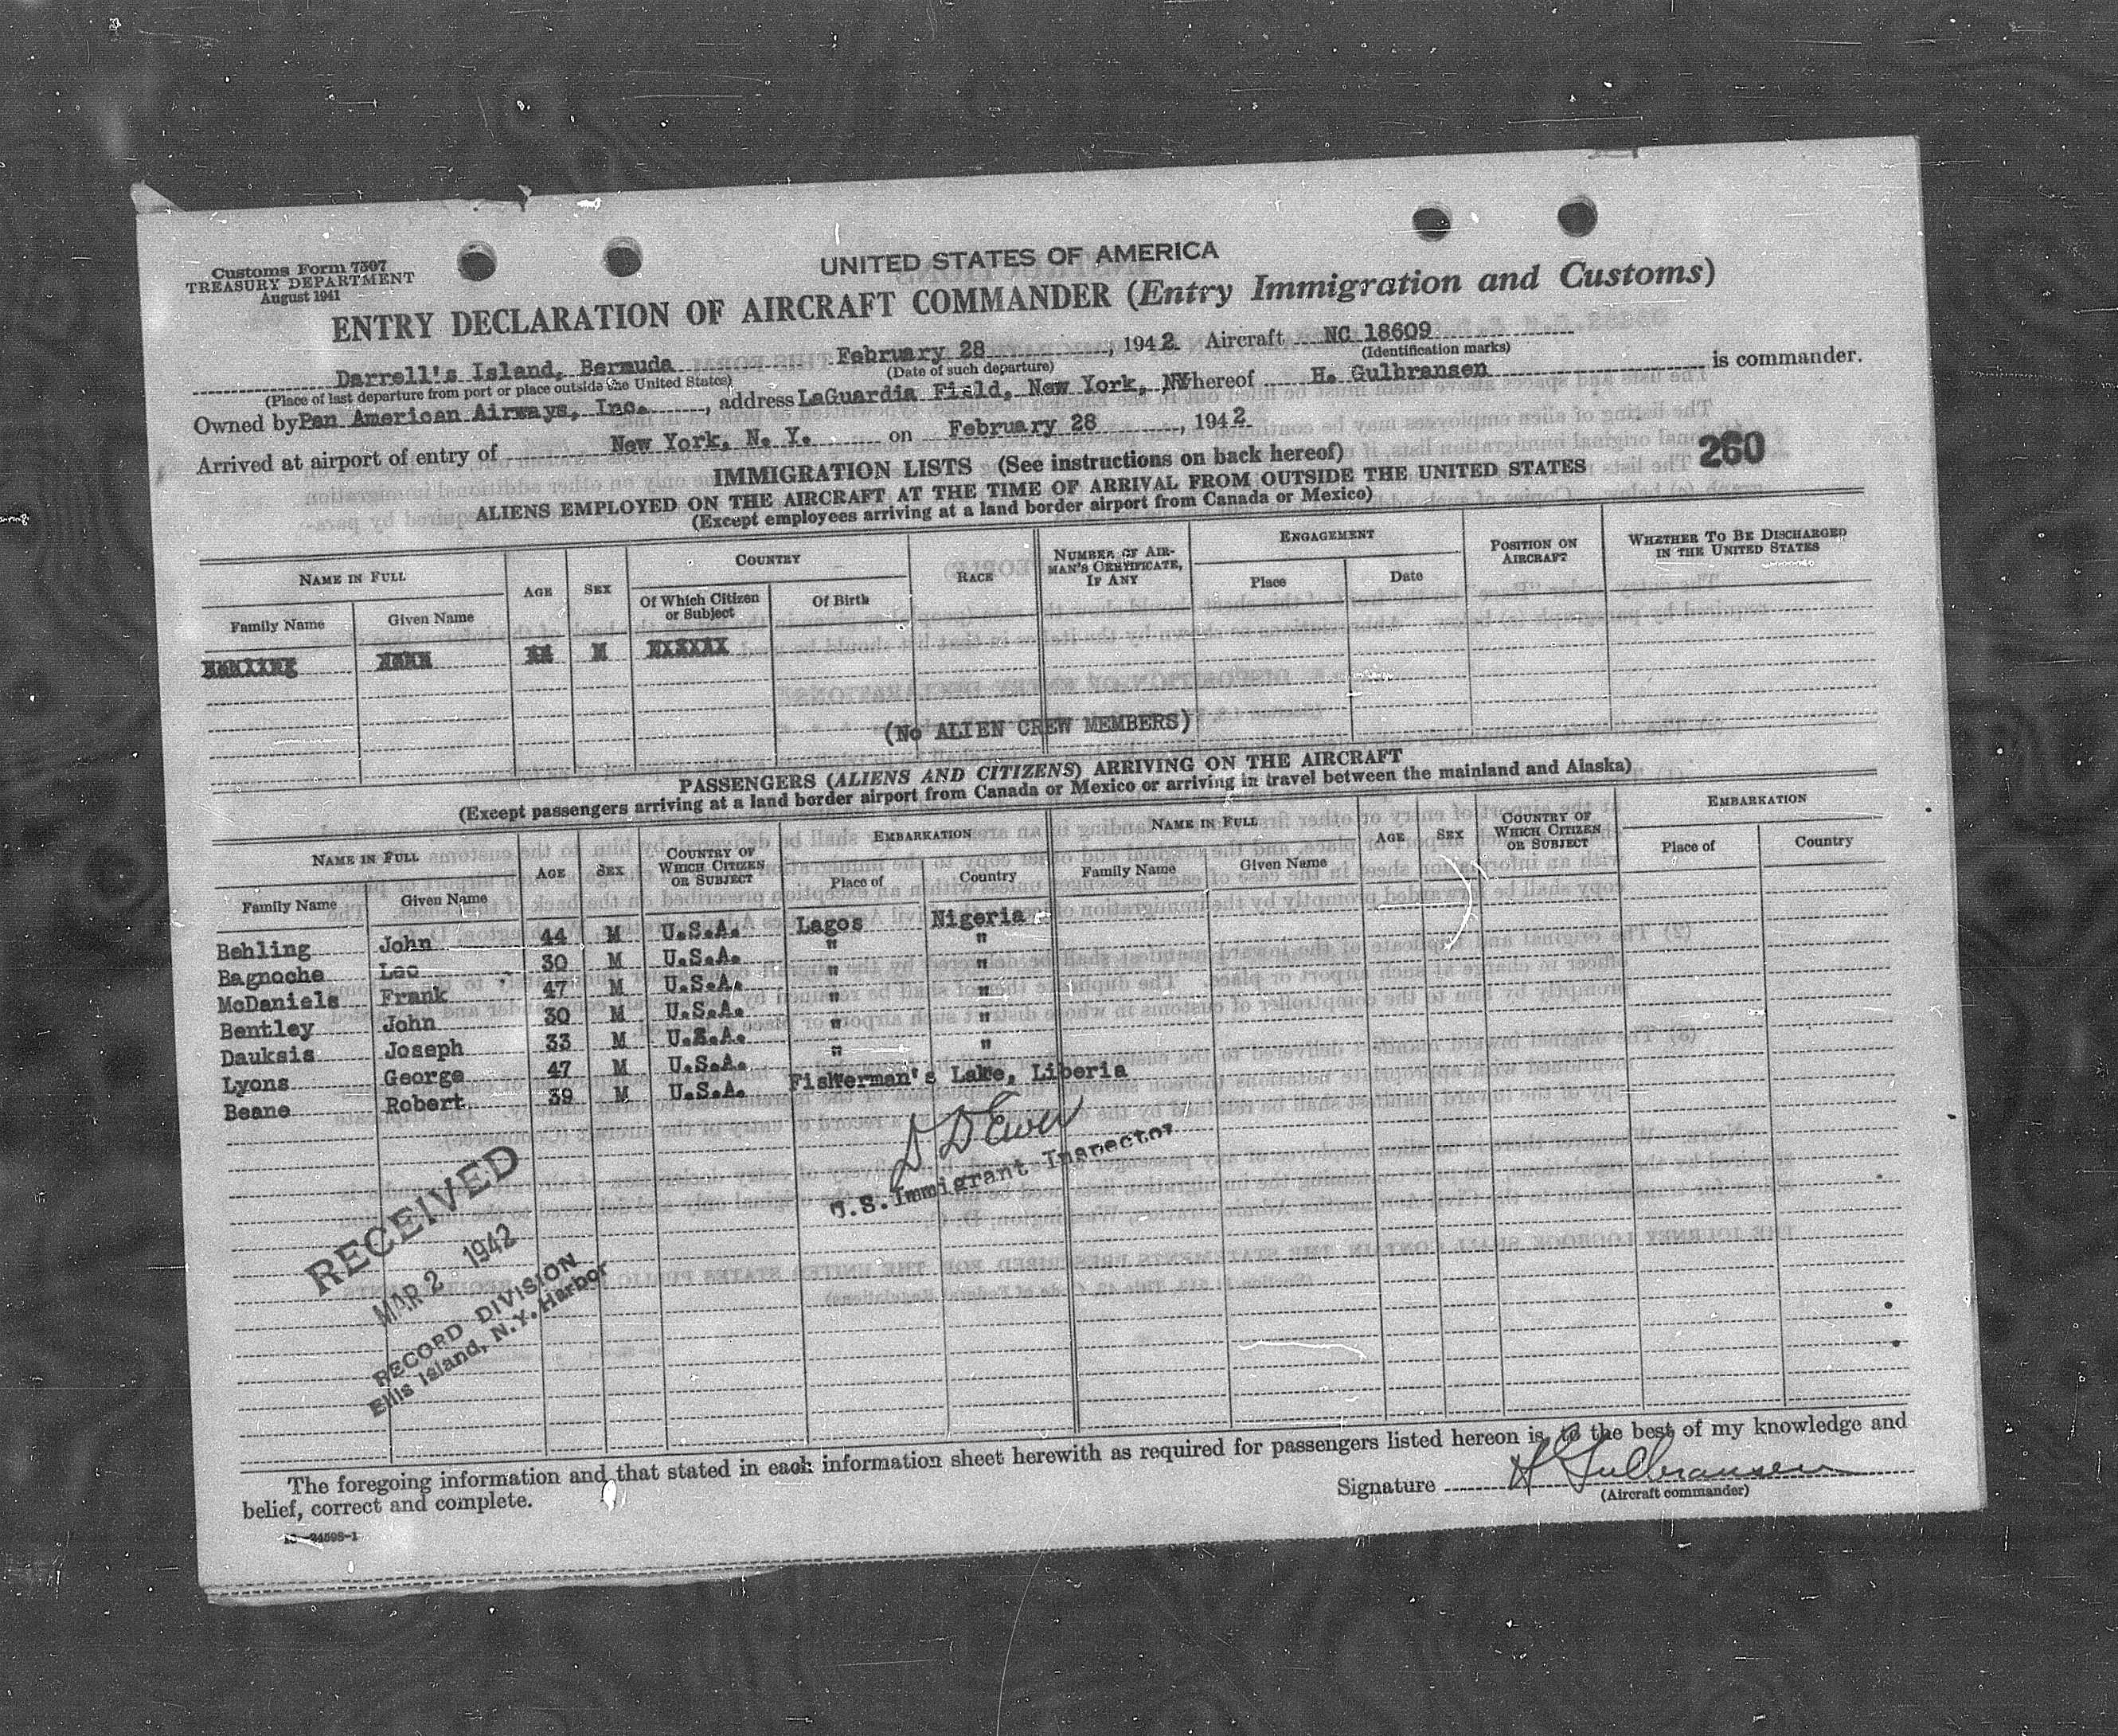 Customs Form 7507
TREASURY DEPARTMENT
August 1941
UNITED STATES OF AMERICA
ENTRY DECLARATION OF AIRCRAFT COMMANDER (Entry Immigration and Customs)
Darrell's Island, Bermuda February 28, 1942. Aircraft NC 18609
(Place of last departure from port or place outside the United States) (Date of such departure) (Identification marks)
Owned by Pan American Airways, Inc., address LaGuardia Field, New York, NY Whereof H. Gulbransen is commander.
Arrived at airport of entry of New York, N. Y. on February 28, 1942
260
IMMIGRATION LISTS (See instructions on back hereof)
ALIENS EMPLOYED ON THE AIRCRAFT AT THE TIME OF ARRIVAL FROM OUTSIDE THE UNITED STATES
(Except employees arriving at a land border airport from Canada or Mexico)
NAME IN FULL AGE SEX COUNTRY RACE NUMBER OF AIRMAN'S CERTIFICATE, IF ANY ENGAGEMENT POSITION ON AIRCRAFT WHETHER TO BE DISCHARGED IN THE UNITED STATES
Family Name Given Name Of Which Citizen or Subject Of Birth Place Date
M
(No ALIEN CREW MEMBERS)
PASSENGERS (ALIENS AND CITIZENS) ARRIVING ON THE AIRCRAFT
(Except passengers arriving at a land border airport from Canada or Mexico or arriving in travel between the mainland and Alaska)
NAME IN FULL AGE SEX COUNTRY OF WHICH CITIZEN OR SUBJECT EMBARKATION NAME IN FULL AGE SEX COUNTRY OF WHICH CITIZEN OR SUBJECT EMBARKATION
Family Name Given Name Place of Country Family Name Given Name Place of Country
Behling John 44 M U.S.A. Lagos Nigeria
Bagnoche Leo 30 M U.S.A. " "
McDaniels Frank 47 M U.S.A. " "
Bentley John 30 M U.S.A. " "
Dauksis Joseph 33 M U.S.A. " "
Lyons George 47 M U.S.A. " "
Beane Robert 39 M U.S.A. Fisherman's Lake, Liberia
U.S. Immigrant Inspector
RECEIVED
MAR 2 1942
RECORD DIVISION
Ellis Island, N.Y. Harbor
The foregoing information and that stated in each information sheet herewith as required for passengers listed hereon is, to the best of my knowledge and
belief, correct and complete.
Signature H Gulbransen
(Aircraft commander)